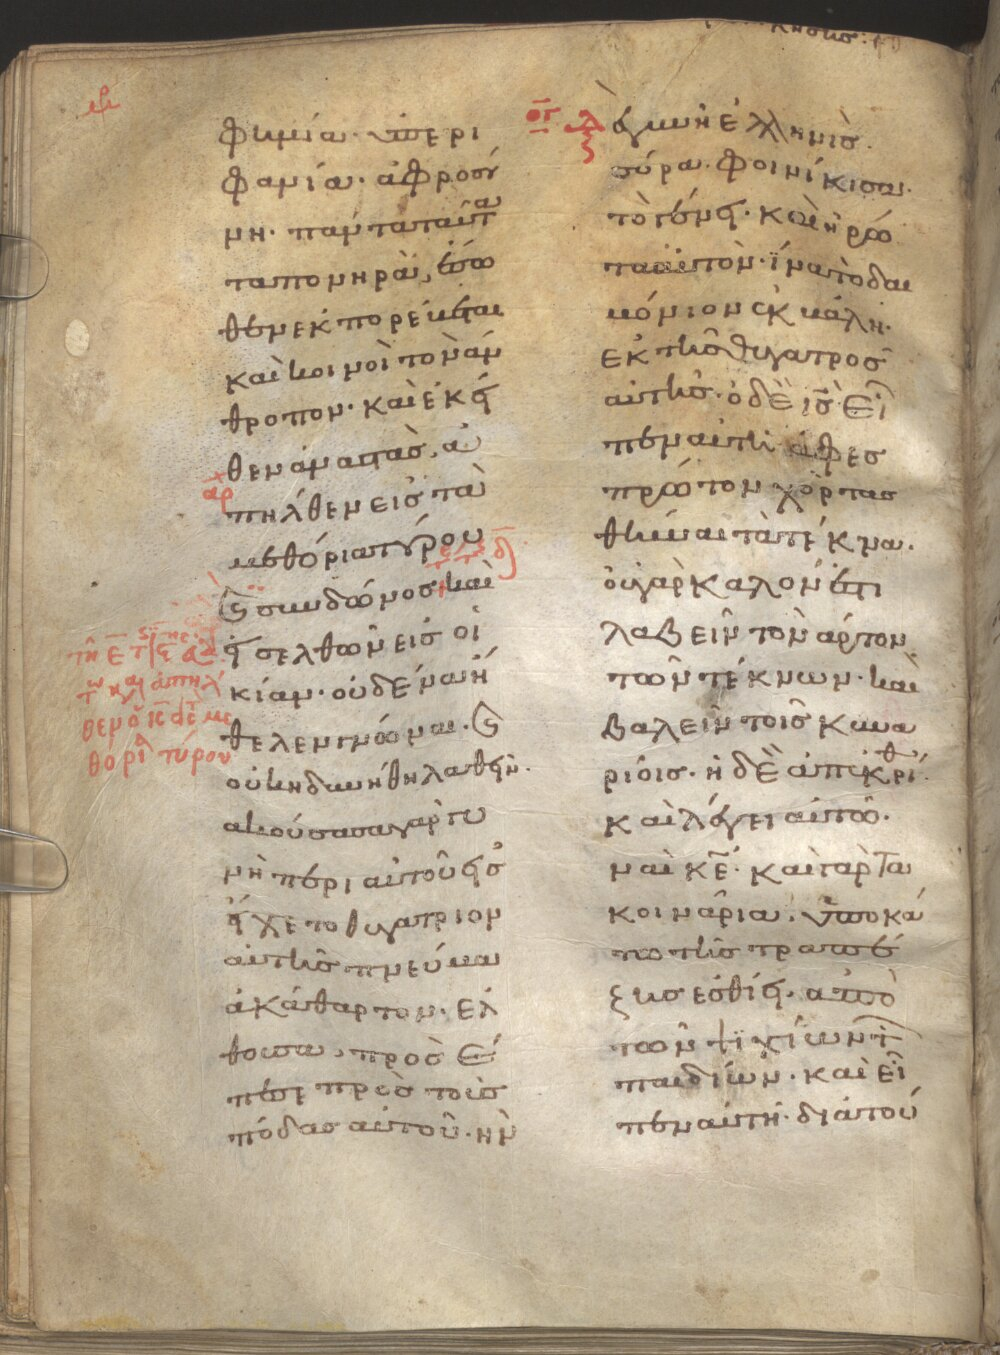 φημία· ὑπερι
φανία· ἀφροσύ
νη· πάντα ταῦτα
τα πονηρὰ, ἔσω
θεν ἐκπορεύεται
καὶ κοινοὶ τὸν ἄν
θροπον· καὶ ἐκεῖ
θεν ἀναστὰς, ἀ
πῆλθεν εἰς τὰ
μεθόρια τύρου
καὶ συνδῶνος· καὶ
εἰσελθὼν εἰς οἰ
κίαν· οὐδένα ἤ
θελεν γνῶναι· καὶ
οὐκ ηδυνήθη λαθεῖν·
ακούσασα γὰρ γυ
νὴ περι αὐτοῦ εἷς
εἶχε το θυγατριον
αὐτῆς πνεύμα
ἀκάθαρτον· ἐλ
θοῦσα, προσέ
πεσε πρὸς τοὺς
πόδας αὐτοῦ· ἦν
αρχ
τῆ
τω καιρω ἀπῆλ
θεν ὁ ις εἰς τα με
θόρια τύρου
ογ
δὲ γυνὴ ἑλληνὶς
σύρα φοινίκισα·
τὸ γένει· καὶ ἠρώ
τα αὐτὸν· ἵνα τὸ δαι
μόνιον ἐκβάλη·
ἐκ τῆς θυγατρος
αὐτῆς· ὁ δὲ ις εἶ
πεν αὐτῆ ἄφες
πρῶτον χορτασ
θῆναι τὰ τέκνα·
οὐ γὰρ καλον ἐστι
λαβεῖν τὸν άρτον
τῶν τέκνων· καὶ
βαλεῖν τοῖς κυνα
ρίοις· ἡ δὲ ἀπεκρίθη
καὶ λέγει αὐτῶ·
ναὶ κε· καὶ γὰρ τα
κοινάρια· ὑποκά
τω τῆς τραπέ
ζης εσθίει· απὸ
τῶν ψιχίων τῶν
παιδίων· καὶ εἶ
πεν αὐτῆ· διὰ τού